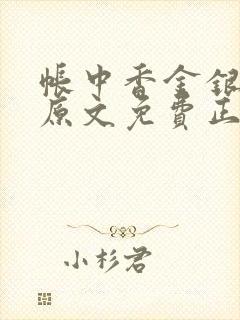 帳中香金銀
原文免費正
小杉君